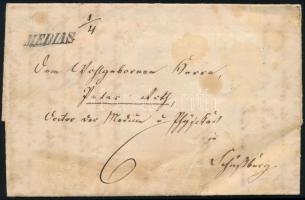 1/4
MEDIAS
Dem Wohlgebornen Herrn,
Peter Roth,
Doctor der Medicin u Physikus
zu
Schäßburg.
6